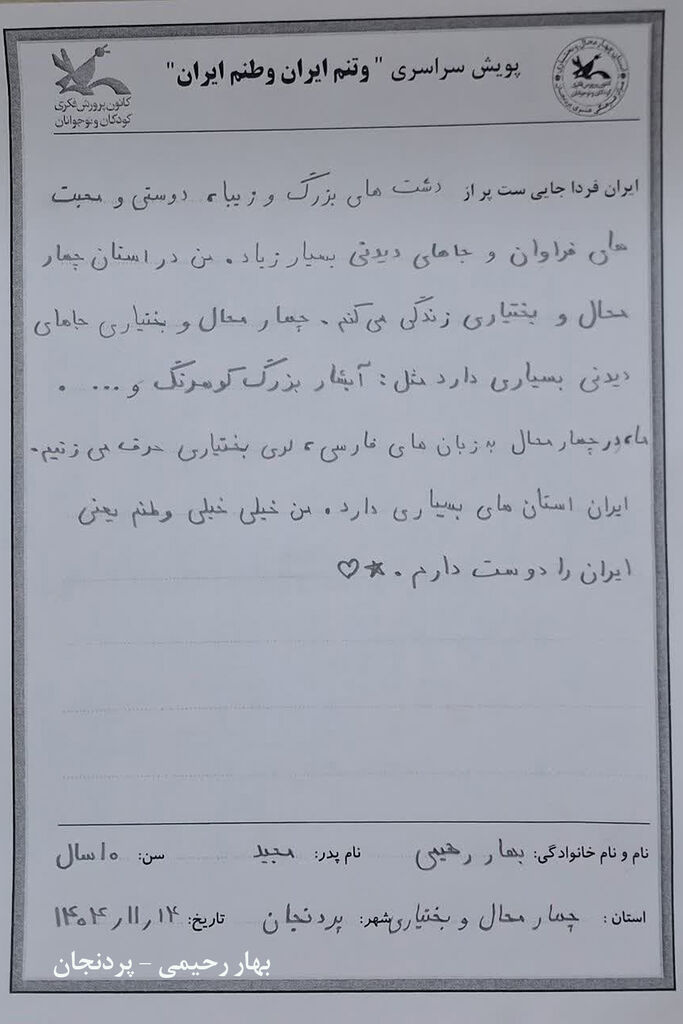 پویش سراسری "وتنم ایران وطنم ایران"
کانون پرورش فکری
کودکان و نوجوانان
ایران فردا جایی ست پر از دشت های بزرگ و زیبا، دوستی و محبت
های فراوان و جاهای دیدنی بسیار زیاد. من در استان چهار
محال و بختیاری زندگی می کنم. چهار محال و بختیاری جاهای
دیدنی بسیاری دارد مثل: آبشار بزرگ کوهرنگ و... .
ما، در چهار محال به زبان های فارسی، لری بختیاری حرف می زنیم.
ایران استان های بسیاری دارد. من خیلی خیلی وطنم یعنی
ایران را دوست دارم. ★♡
نام و نام خانوادگی: بهار رحیمی نام پدر: مجید سن: ۱۰ سال
استان: چهار محال و بختیاری شهر: پردنجان تاریخ: ۱۴۰۴/۱۱/۱۴
بهار رحیمی - پردنجان